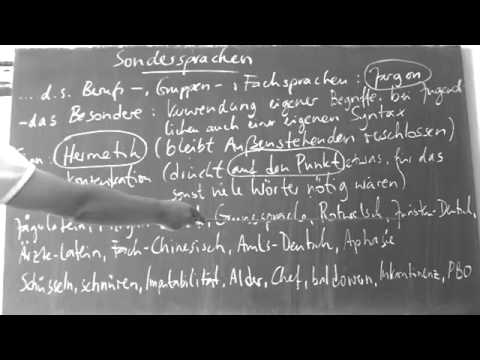 Sondersprachen
... d.s. Berufs-, Gruppen-, Fachsprachen: Jargon
- das Besondere: Verwendung eigener Begriffe, bei Jugend
lichen auch einer eigenen Syntax
Hermetik (bleibt Außenstehenden verschlossen)
Konzentration (drückt auf den Punkt aus, für das
sonst viele Wörter nötig wären)
Jägerlatein, Gaunersprache, Rotwelsch, Juristen-Deutsch,
Ärzte-Latein, Fach-Chinesisch, Amts-Deutsch, Aphasie
Schüsseln, schnüren, Imputabilität, Alder, Chef, baldowern, Inkontinenz, PBO